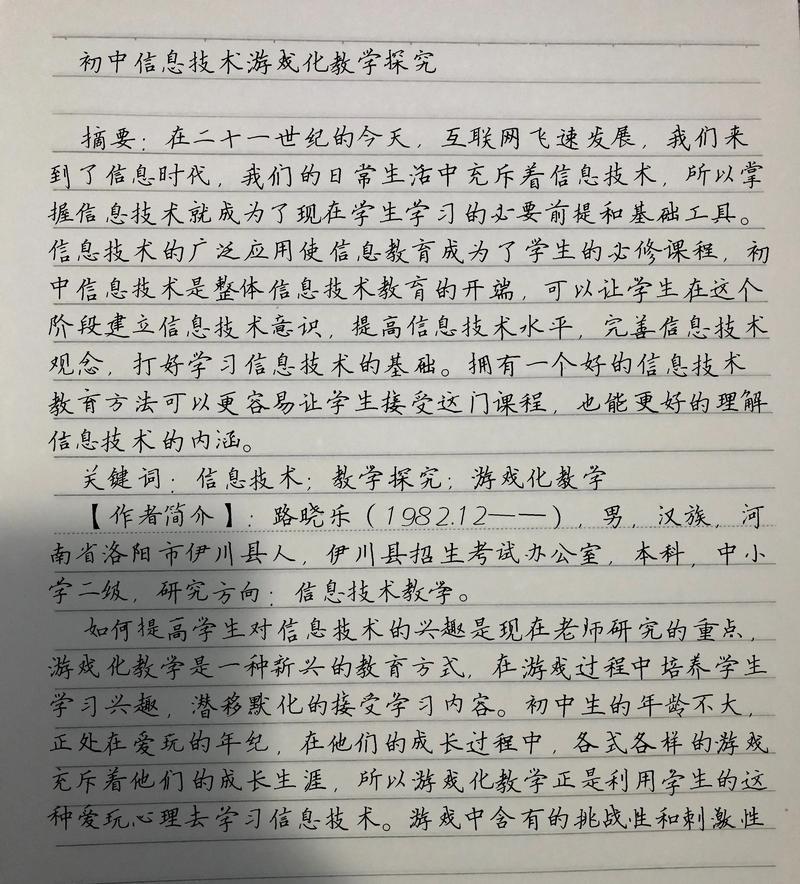 初中信息技术游戏化教学探究
摘要：在二十一世纪的今天，互联网飞速发展，我们来
到了信息时代，我们的日常生活中充斥着信息技术，所以掌
握信息技术就成为了现在学生学习的必要前提和基础工具。
信息技术的广泛应用使信息教育成为了学生的必修课程，初
中信息技术是整体信息技术教育的开端，可以让学生在这个
阶段建立信息技术意识，提高信息技术水平，完善信息技术
观念，打好学习信息技术的基础。拥有一个好的信息技术
教育方法可以更容易让学生接受这门课程，也能更好的理解
信息技术的内涵。
关键词：信息技术；教学探究；游戏化教学
【作者简介】：路晓乐（1982.12——），男，汉族，河
南省洛阳市伊川县人，伊川县招生考试办公室，本科，中小
学二级，研究方向：信息技术教学。
如何提高学生对信息技术的兴趣是现在老师研究的重点，
游戏化教学是一种新兴的教育方式，在游戏过程中培养学生
学习兴趣，潜移默化的接受学习内容。初中生的年龄不大，
正处在爱玩的年纪，在他们的成长过程中，各式各样的游戏
充斥着他们的成长生涯，所以游戏化教学正是利用学生的这
种爱玩心理去学习信息技术。游戏中含有的挑战性和刺激性